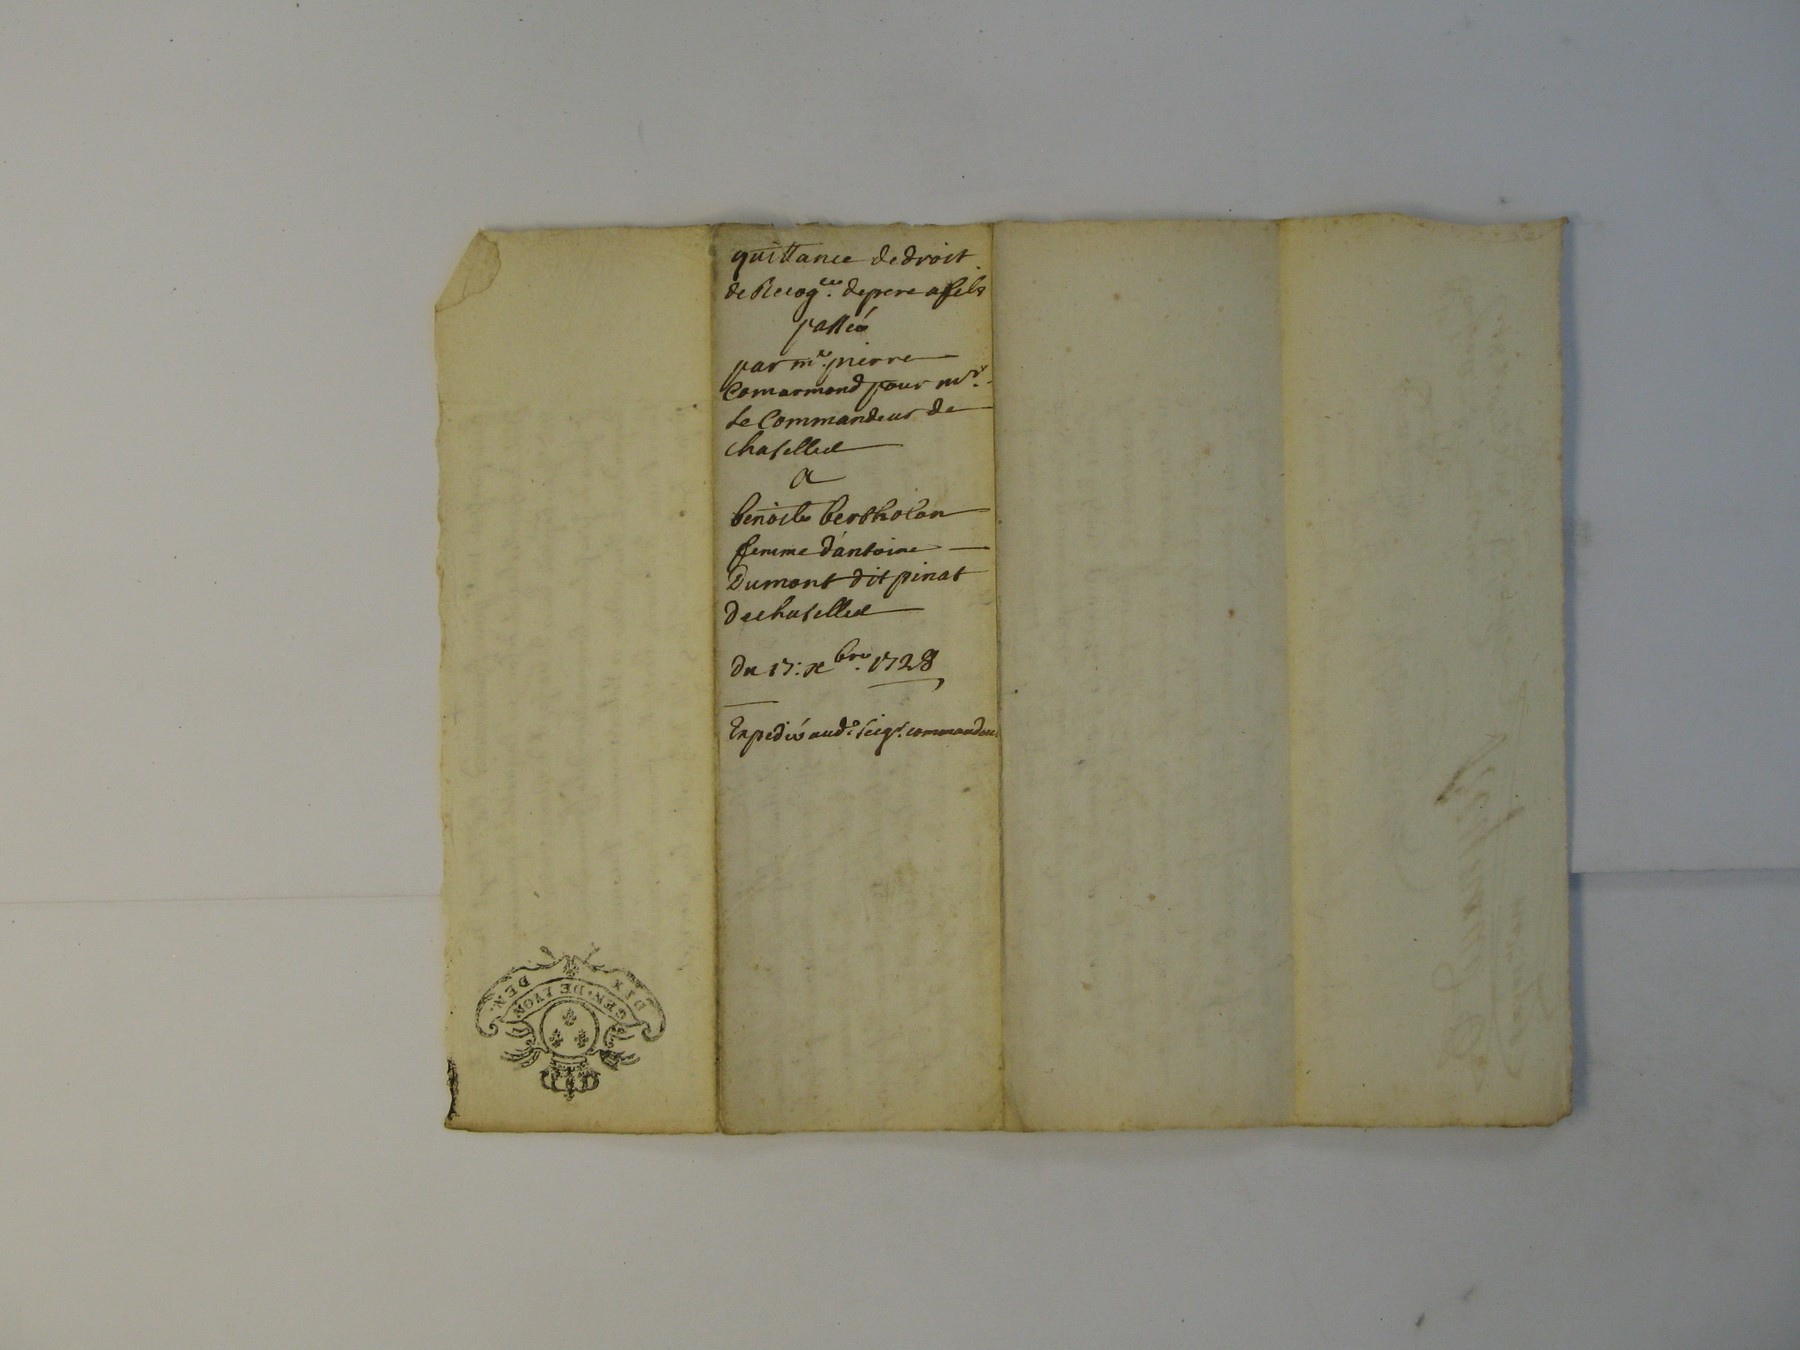 quittance de droit
de Recog.ces de pere a fils
passée
par me. pierre
Comarmond pour mr.
Le Commandeur de
chaselles
a
benoiste bertholon
femme d'antoine
Dumont dit pinat
de chaselles
du 17: xbre. 1728
Expedié aud. seigr. commandeur
DIX DEN.
GEN. DE LYON